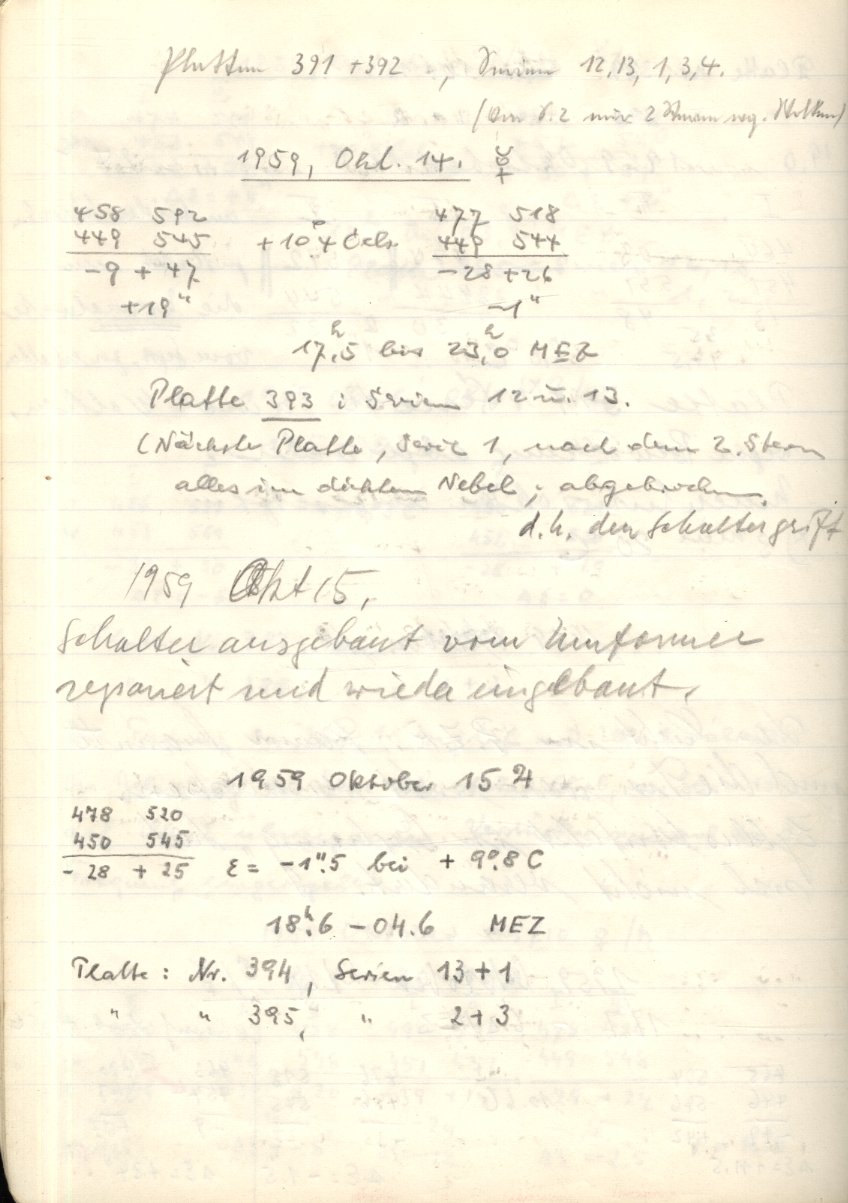 Platten 391 + 392, Serien 12, 13, 1, 3, 4.
(von S. 2 nur 2 Sterne weg. Wolken)
1959, Okt. 14. ☿
458 592 477 518
449 545 +10°,4 Cels. 449 544
-9 + 47 -28 +26
+19" -1"
17,5ʰ bis 23,0ʰ MEZ
Platte 393 : Serien 12 u. 13.
(Nächste Platte, Serie 1, nach dem 2. Stern
alles im dichten Nebel; abgebrochen.
d.h. der Schaltergriff
1959 Okt 15,
Schalter ausgebaut vom Umformer
repariert und wieder eingebaut.
1959 Oktober 15 ♃
478 520
450 545
- 28 + 25 ε = -1",5 bei + 9°,8 C
18ʰ,6 - 04.6 MEZ
Platte : Nr. 394, Serien 13 + 1
" " 395, " 2 + 3